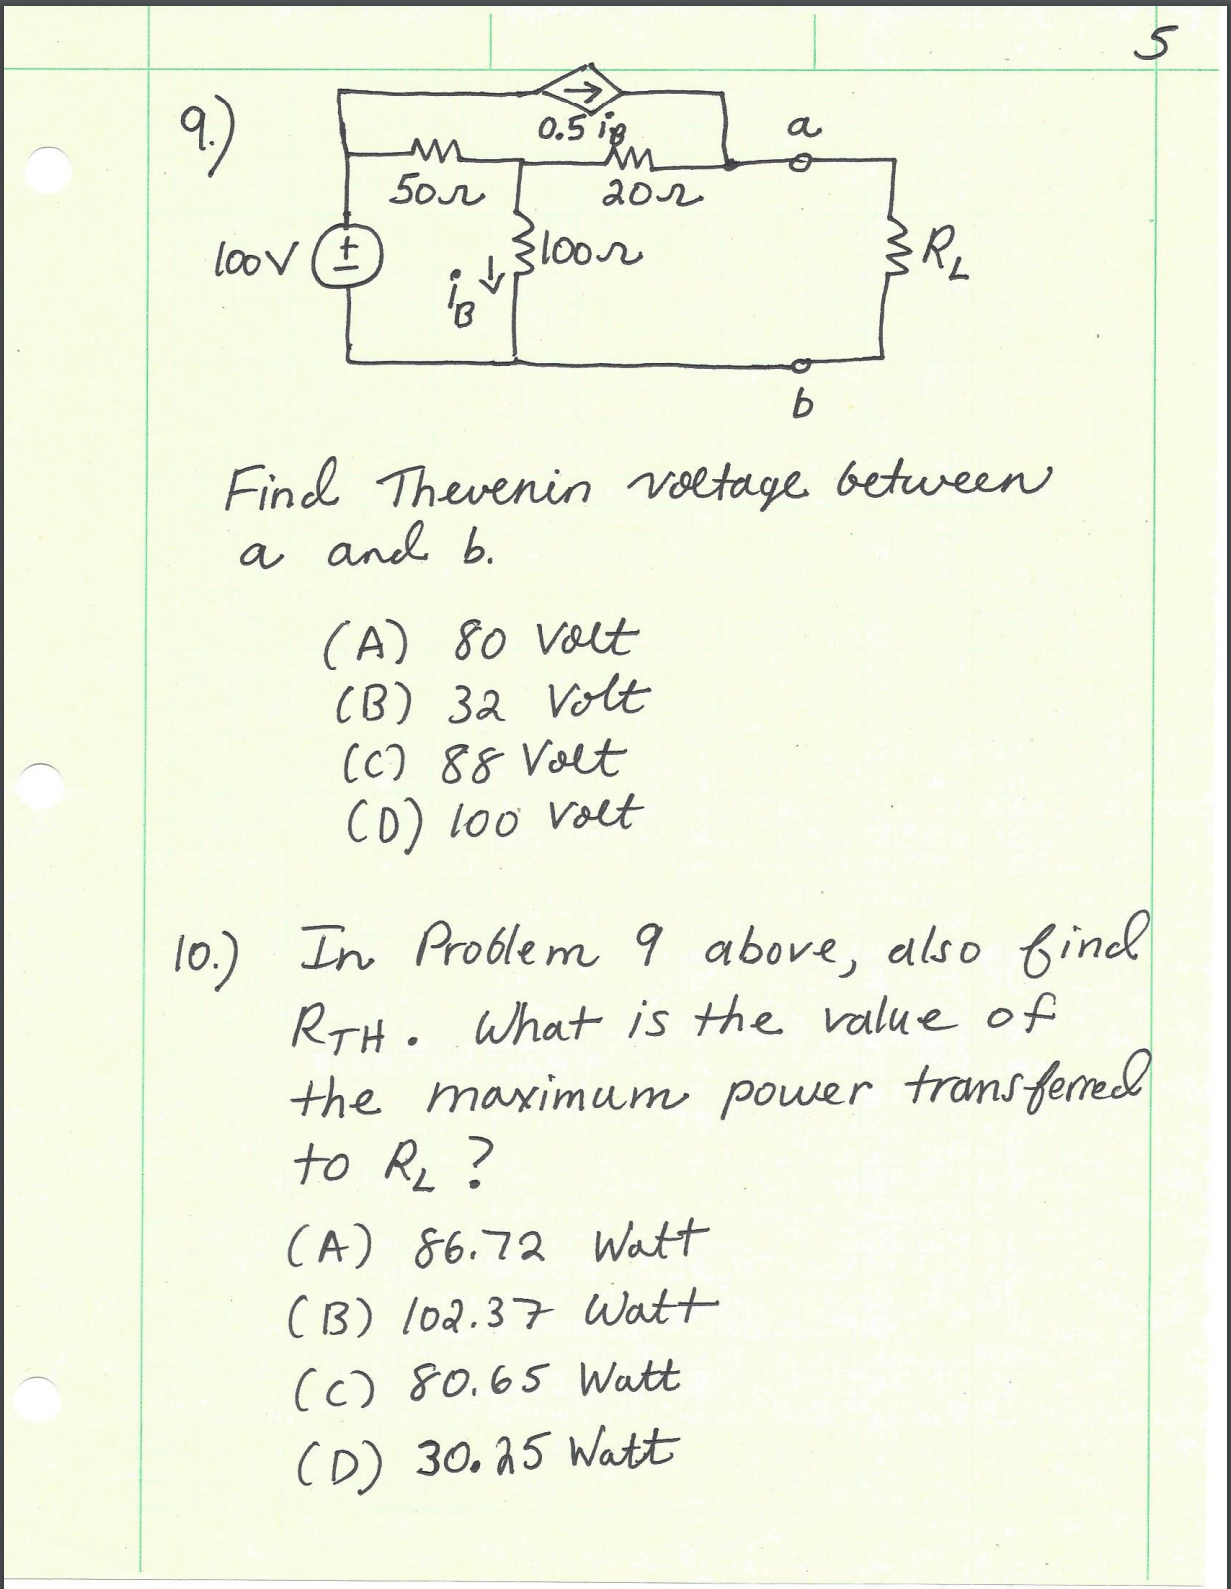 5
9.)
0.5 iB
a
50Ω
20Ω
100V
+
−
iB
100Ω
RL
b
Find Thevenin voltage between
a and b.
(A) 80 Volt
(B) 32 Volt
(C) 88 Volt
(D) 100 Volt
10.) In Problem 9 above, also find
RTH. What is the value of
the maximum power transferred
to RL?
(A) 86.72 Watt
(B) 102.37 Watt
(C) 80.65 Watt
(D) 30.25 Watt